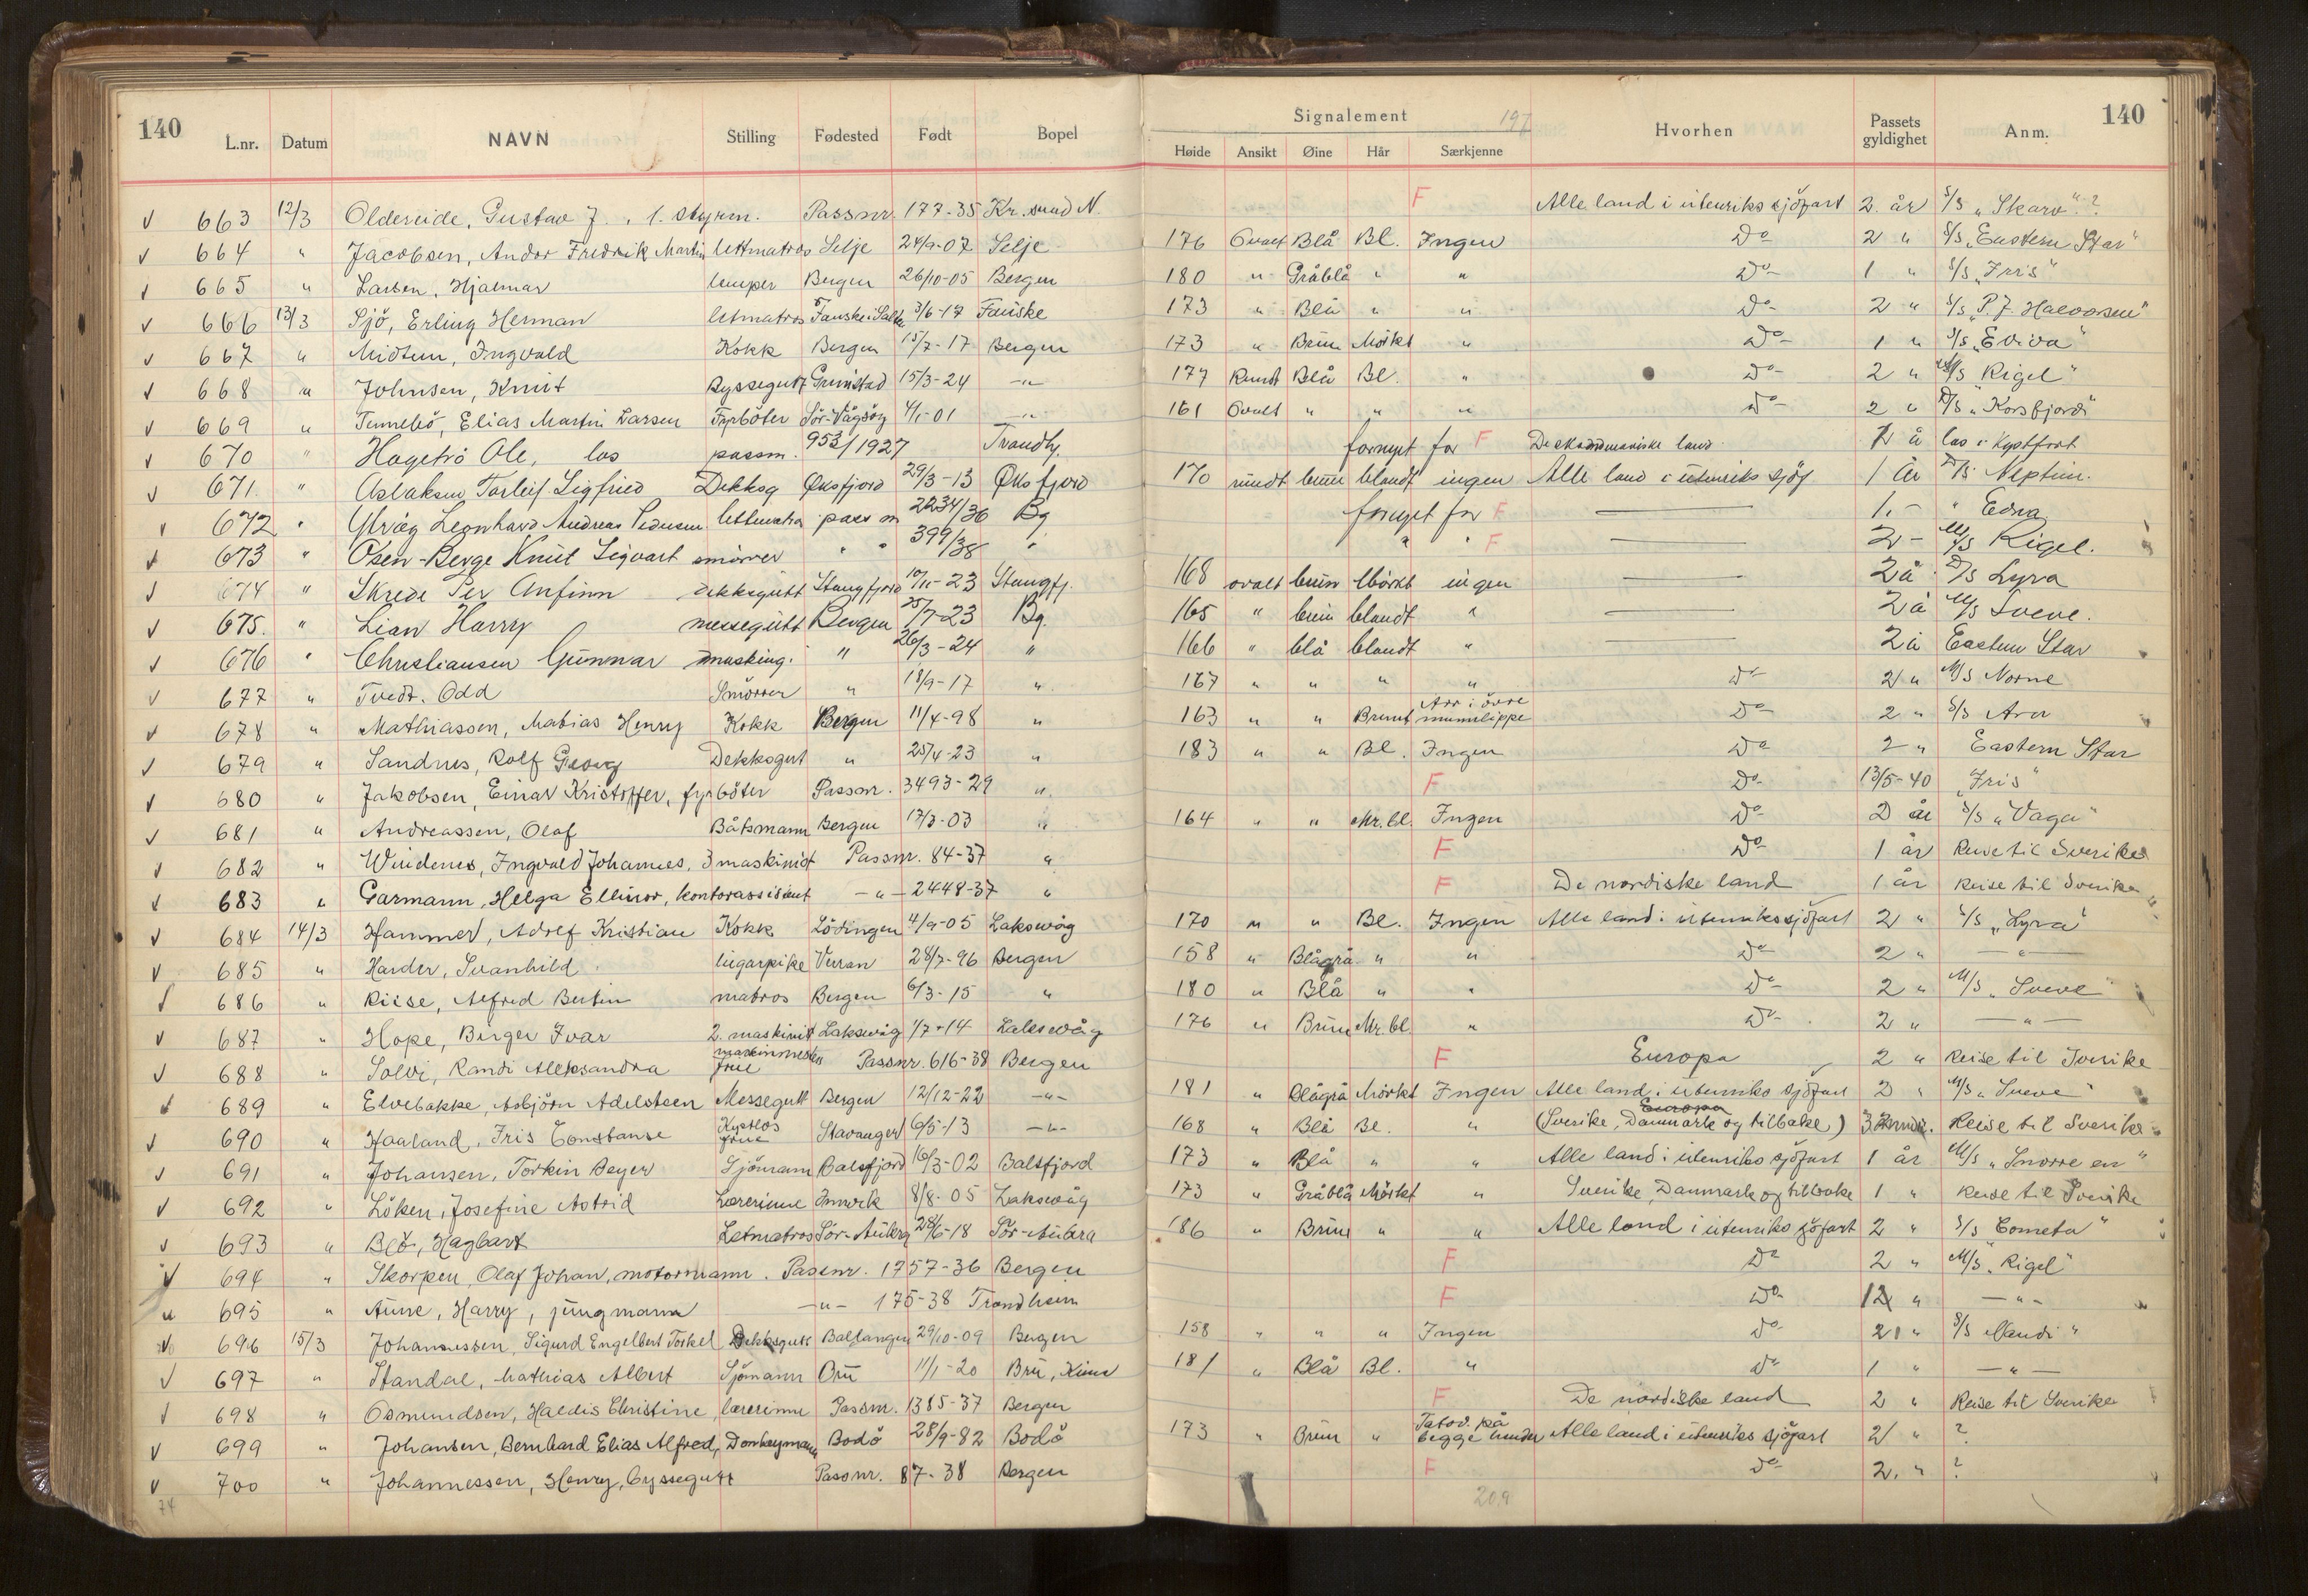 140
L.nr. Datum NAVN Stilling Fødested Født Bopel
Signalement 197
Høide Ansikt Øine Hår Særkjenne Hvorhen Passets gyldighet Anm.
140
v 663 12/3 Oldereide, Gustav J., 1. styrm. Passnr. 177-35 Kr.sund N. F Alle land i utenriks sjöfart 2. år S/S "Skarv"?
v 664 " Jacobsen, Andor Fredrik Martin lettmatros Selje 24/9-07 Selje 176 Ovalt Blå Bl. Ingen Do 2 " S/S "Eastern Star"
v 665 " Larsen, Hjalmar lemper Bergen 26/10-05 Bergen 180 " Gråblå " " Do- 1 " S/S "Iris"
v 666 13/3 Sjö, Erling Herman letmatros Fauske i Salten 3/6-17 Fauske 173 " Blå " " Do- 2 " S/S "P.J. Halvorsen"
v 667 " Midtun, Ingvald Kokk Bergen 15/7-17 Bergen 173 " Brun Mörkt " Do- 1 " S/S "Eviva"
v 668 " Johnsen, Knut Byssegutt Grimstad 15/3-24 -"- 177 Rundt Blå Bl. " Do- 2 " M/S "Rigel"
v 669 " Tennebö, Elias Martin Larsen Fyrböter Sör-Vågsöy 4/1-01 -"- 161 Ovalt " " " Do- 2 " D/S "Korsfjord"
v 670 " Hagetrö Ole, los passnr. 953/1927 Trondhj. fornyet for F De skandinaviske land 1 å los i Kystfart
v 671. " Aslaksen Torleif Sigfried Dekksg Øksfjord 29/3-13 Øksfjord 170 rundt brun blandt ingen Alle land i utenriks sjöf 1 år D/S Neptun.
v 672 " Ulvåg Leonhard Andreas Pedersen lettmatros pass nr 2234/36 Bg fornyet for F — 1.- " Edna
v 673 " Osen-Berge Knut Sigvart smörer " " 399/38 " " " F — 2- M/S Rigel.
v 674 " Skrede Per Anfinn dekksgutt Stangfjord 10/11-23 Stangfj. 168 ovalt brun Mörkt ingen — 2 å D/S Lyra
v 675. " Lian Harry messegutt Bergen 25/7-23 Bg. 165 " brun blandt " — 2 å M/S Sveve.
v 676 " Christiansen Gunnar masking. " 26/3-24 " 166 " blå blandt " — 2 å Eastern Star
v 677 " Tvedt. Odd Smörer " 18/9-17 " 167 " " " " Do- 2 " M/S Norne
v 678 " Mathiassen, Mabias Henry Kokk Bergen 11/4-98 " 163 " " Brunt Arr i övre munnlippe Do- 2 " S/S Ara
v 679 " Sandnes, Rolf Georg Dekksgut " 25/4-23 " 183 " " Bl. Ingen Do 2 " Eastern Star
v 680 " Jakobsen, Einar Kristoffer, fyrböter Passnr. 3493-29 " F Do- 13/5-40 "Iris"
v 681 " Andreassen, Olaf Båtsmann Bergen 17/3-03 " 164 " " Mr.bl. Ingen Do- 2 år S/S "Vaga"
v 682 " Windenes, Ingvald Johannes, 3 maskinist Passnr. 84-37 " F Do- 1 år Reise til Sverike
v 683 " Garmann, Helga Ellinor, kontorassistent -"- 2448-37 " F De nordiske land 1 år Reise til Sverike
v 684 14/3 Hammer, Adolf Kristian Kokk Lödingen 4/9-05 Laksevåg 170 " " Bl. Ingen Alle land i utenrikssjöfart 2 " S/S "Lyra"
v 685 " Harder, Svanhild lugarpike Verran 28/7-96 Bergen 158 " Blågrå " " Do 2 " -"-
v 686 " Riise, Alfred Bertin matros Bergen 6/3-15 " 180 " Blå " " Do 2 " M/S "Sveve"
v 687 " Hope, Birger Ivar 2. maskinist Laksevåg 1/7-14 Laksevåg 176 " Brun Mr.bl. " Do- 2 " -"-
v 688 " Solvi, Randi Aleksandra maskinmester frue Passnr. 616-38 Bergen F Europa 2 " Reise til Sverike
v 689 " Elvebakke, Asbjörn Adelsteen Messegutt Bergen 12/12-22 -"- 181 " Blågrå Mörkt Ingen Alle land i utenriks sjöfart 2 " M/S "Sveve"
v 690 " Haaland, Iris Constanse Kystlos frue Stavanger 6/5-13 -"- 168 " Blå Bl. " Europa (Sverike, Danmark og tilbake) 3 Mnd. Reise til Sverike
v 691 " Johansen, Torkin Beyer Sjömann Balsfjord 16/3-02 Balsfjord 173 " Blå " " Alle land i utenriks sjöfart 1 år M/S "Snorre en"
v 692 " Löken, Josefine Astrid Lærerinne Innvik 8/8-05 Laksevåg 173 " Gråblå Mörkt " Sverike, Danmark og tilbake 1 " Reise til Sverike
v 693 " Blö, Hagbart Letmatros Sör-Aukra 28/6-18 Sör-Aukra 186 " Brun " " Alle land i utenriks sjöfart 2 " S/S "Cometa"
v 694 " Skorpen, Olaf Johan, motormann. Passnr. 1757-36 Bergen F Do 2 " M/S "Rigel"
v 695 " Aune, Harry, jungmann -"- 175-38 Trondheim F Do- 12 " -"-
v 696 15/3 Johannessen, Sigurd Engelbert Torkel Dekksgutt Ballangen 29/10-09 Bergen 158 " " " Ingen do- 2 " S/S "Naudi"
v 697 " Standal, Mathias Albert Sjömann Bru 11/1-20 Bru, Kinn 181 " Blå Bl. " Do 1 " -"-
v 698 " Osmundsen, Haldis Christine, lærerinne Passnr. 1385-37 Bergen F De nordiske land 2 " Reise til Sverike
v 699 " Johansen, Bernhard Elias Alfred, Donkeymann Bodö 28/9-82 Bodö 173 " Brun " Tatov. på begge hender Alle land i utenriks sjöfart 2 " ?
v 700 " Johannessen, Henry, byssegutt Passnr. 87-38 Bergen F do- 2. " ?
74
209